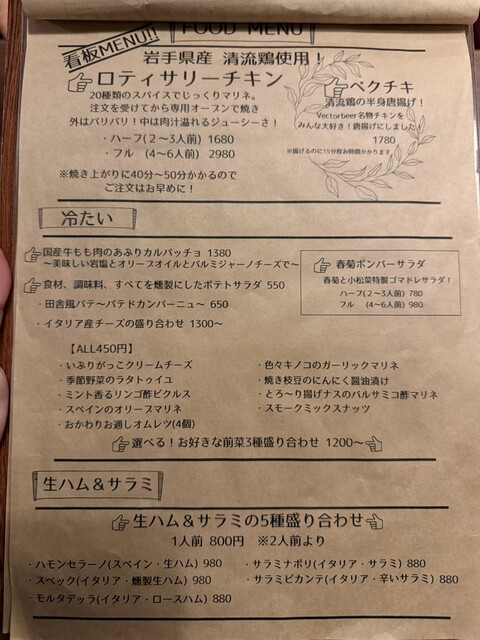 FOOD MENU
看板MENU!!
岩手県産 清流鶏使用！
ロティサリーチキン
20種類のスパイスでじっくりマリネ。
注文を受けてから専用オーブンで焼き
外はパリパリ！中は肉汁溢れるジューシーさ！
・ハーフ(2～3人前) 1680
・フル (4～6人前) 2980
※焼き上がりに40分～50分かかるので
ご注文はお早めに！
ベクチキ
清流鶏の半身唐揚げ！
Vectorbeer名物チキンを
みんな大好き！唐揚げにしました！
1780
※揚げるのに15分程お時間かかります
冷たい
国産牛もも肉のあぶりカルパッチョ 1380
～美味しい岩塩とオリーブオイルとパルミジャーノチーズで～
食材、調味料、すべてを燻製にしたポテトサラダ 550
・田舎風パテ～パテドカンパーニュ～ 650
・イタリア産チーズの盛り合わせ 1300～
春菊ボンバーサラダ
春菊と小松菜特製ゴマドレサラダ！
ハーフ(2～3人前) 780
フル (4～6人前) 980
【ALL450円】
・いぶりがっこクリームチーズ
・季節野菜のラタトゥイユ
・ミント香るリンゴ酢ピクルス
・スペインのオリーブマリネ
・おかわりお通しオムレツ(4個)
・色々キノコのガーリックマリネ
・焼き枝豆のにんにく醤油漬け
・とろ～り揚げナスのバルサミコ酢マリネ
・スモークミックスナッツ
選べる！お好きな前菜3種盛り合わせ 1200～
生ハム＆サラミ
生ハム＆サラミの5種盛り合わせ
1人前 800円 ※2人前より
・ハモンセラーノ(スペイン・生ハム) 980
・スペック(イタリア・燻製生ハム) 980
・モルタデッラ(イタリア・ロースハム) 880
・サラミナポリ(イタリア・サラミ) 880
・サラミピカンテ(イタリア・辛いサラミ) 880